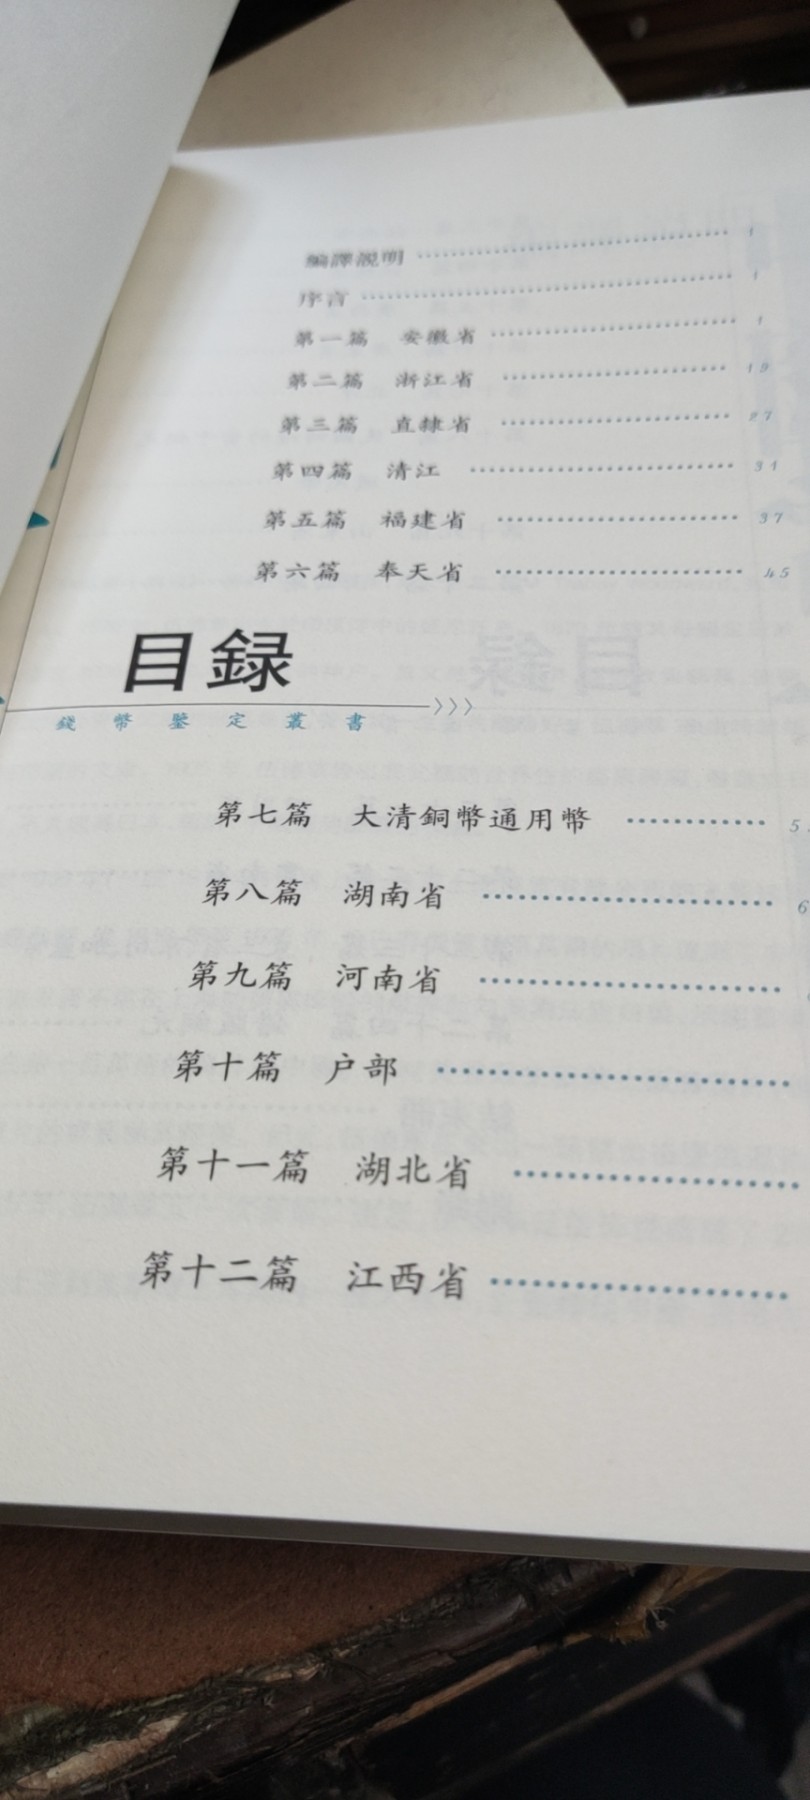 編譯説明 ………… 1
序言 ………… 1
第一篇 安徽省 ………… 1
第二篇 浙江省 ………… 19
第三篇 直隸省 ………… 27
第四篇 清江 ………… 31
第五篇 福建省 ………… 37
第六篇 奉天省 ………… 45
目録
錢幣鑒定叢書
第七篇 大清銅幣通用幣 …………
第八篇 湖南省 …………
第九篇 河南省 …………
第十篇 户部 …………
第十一篇 湖北省 …………
第十二篇 江西省 …………